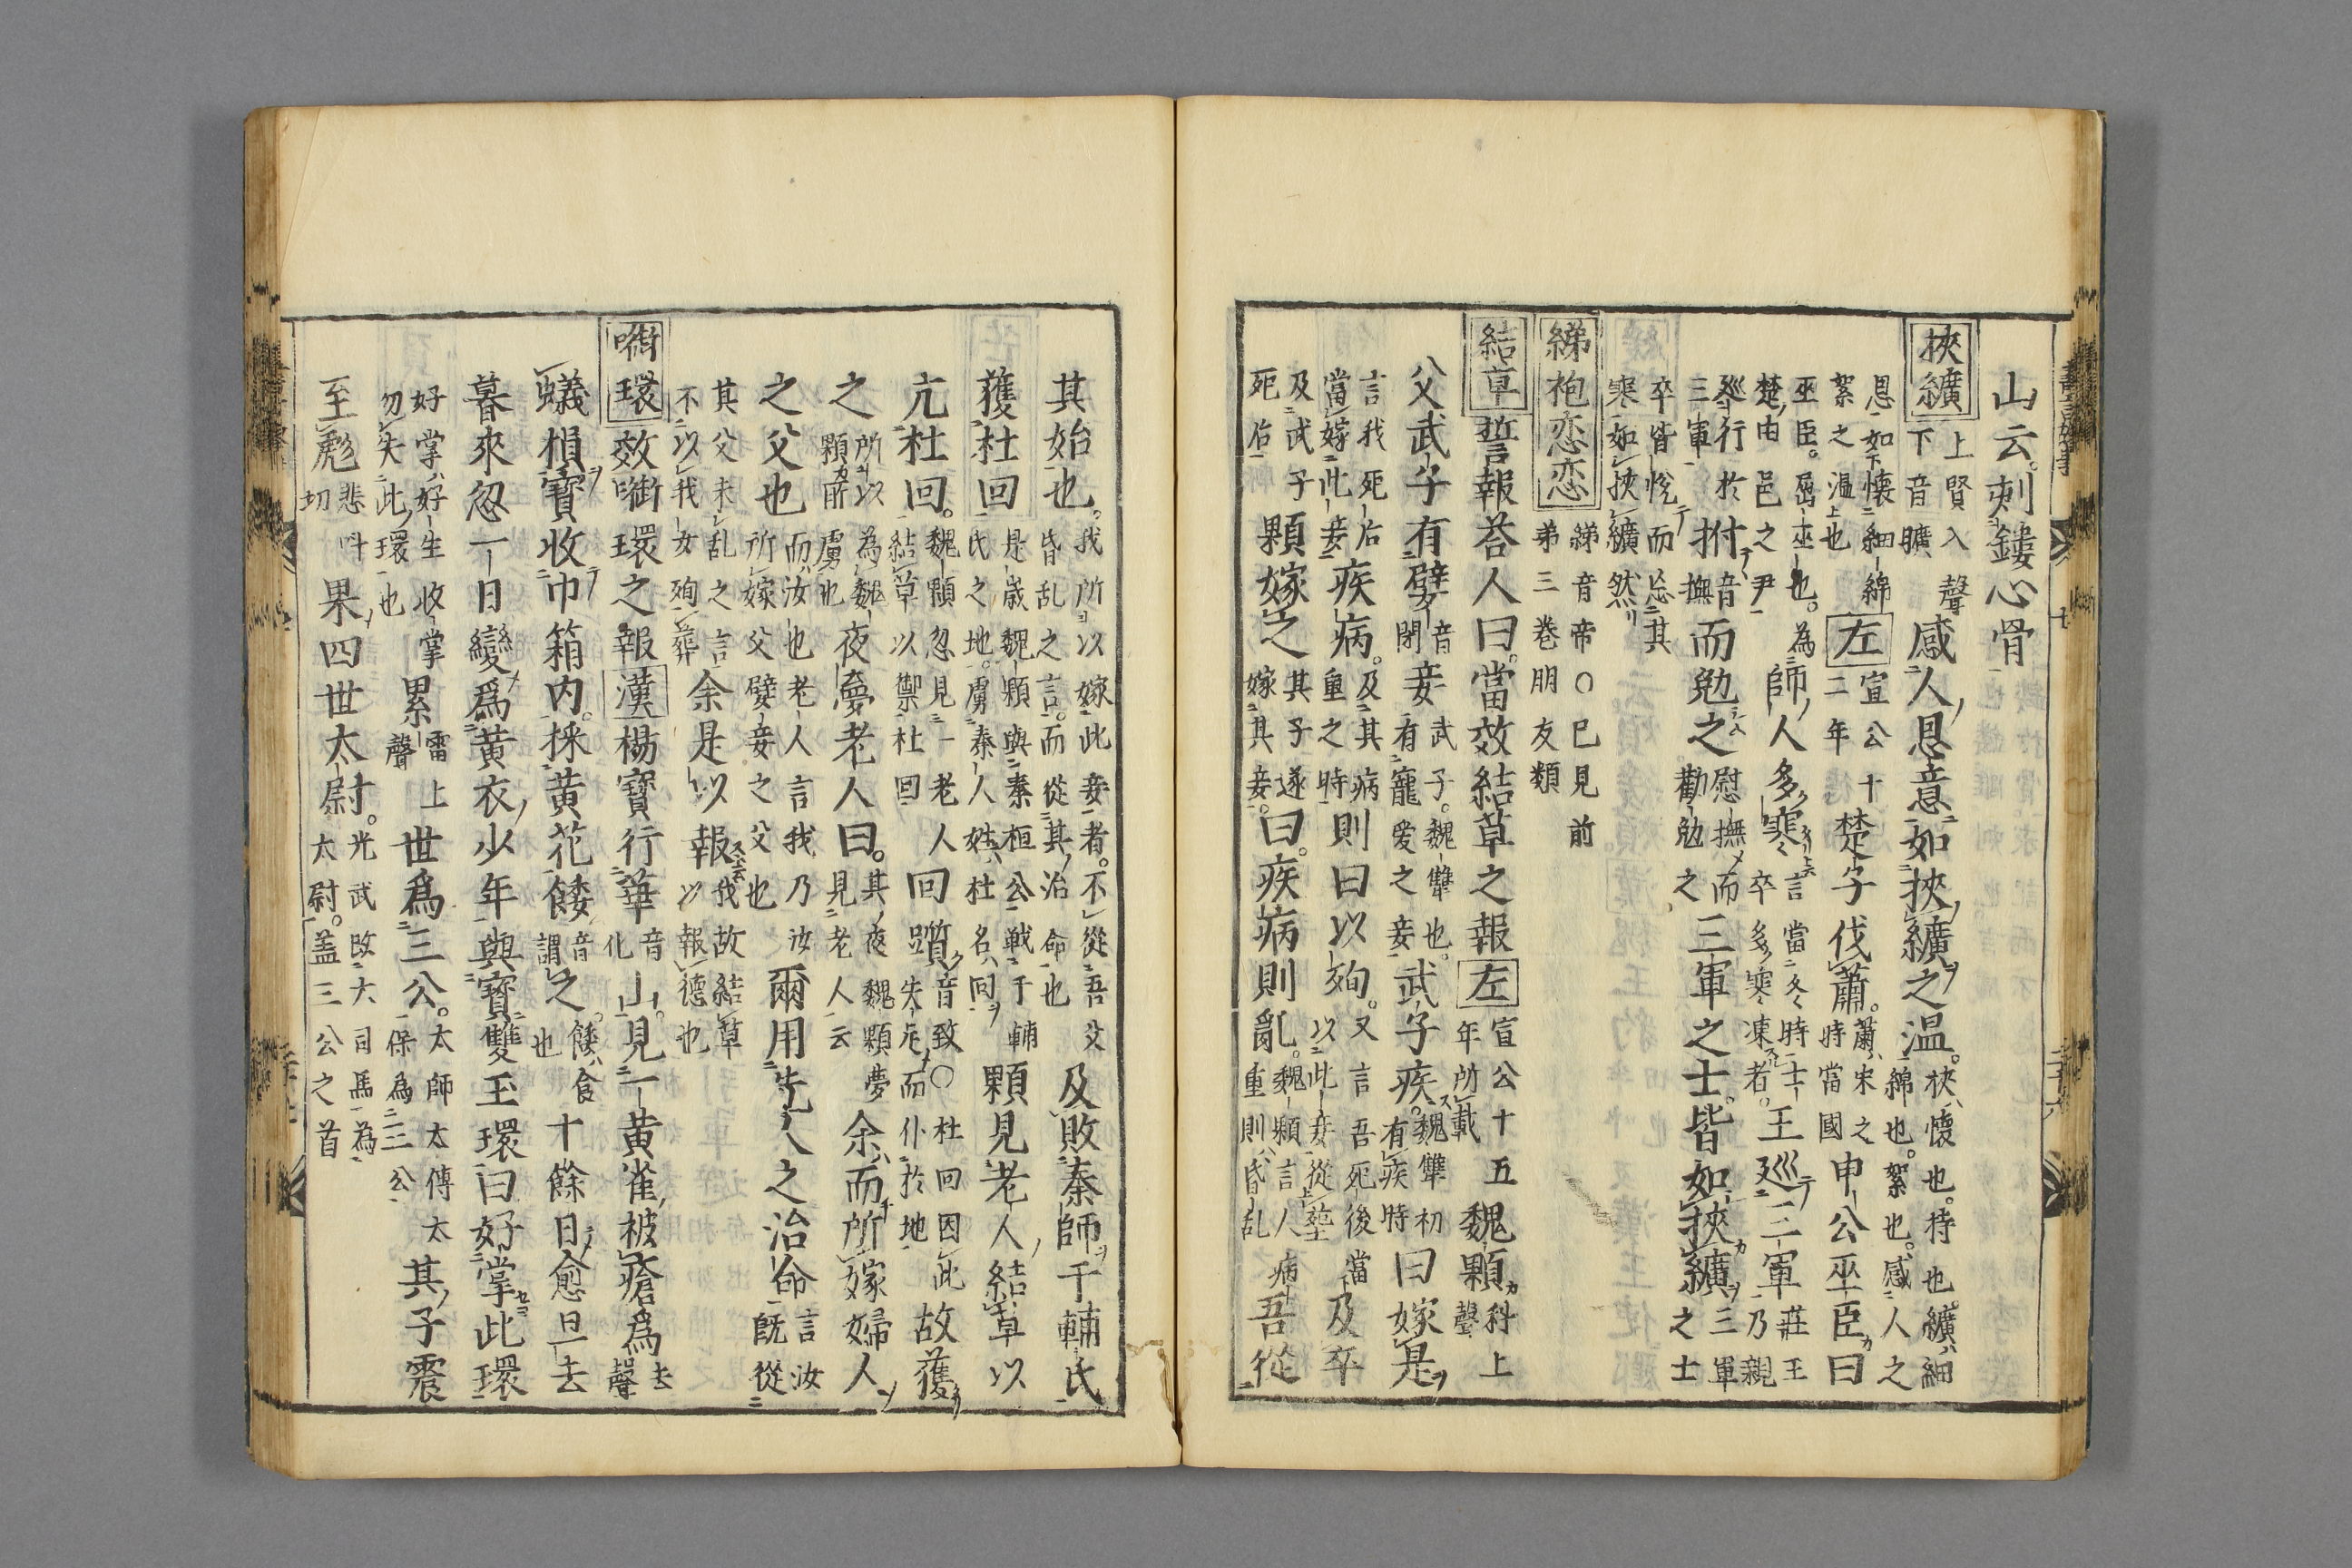 山云刺鏤心骨
挾纊 上賢入聲下音曠 感人恩意如挾纊之温 挾懷也持也纊細綿也絮也感人之
恩如懷細綿絮之温也 左 宣公十二年 楚子伐蕭 蕭宋之時當國 申公巫臣曰
巫臣屈巫也為楚申邑之尹 師人多寒 言當冬時士卒多寒凍者 王巡三軍 莊王乃親
巡行於三軍 拊 音撫 而勉之 慰撫而勸勉之 三軍之士皆如挾纊 三軍之士
卒皆悅而忘其寒如挾纊然
綈袍恋恋 綈音帝○已見前第三巻朋友類
結草 誓報荅人曰當效結草之報 左 宣公十五年所載 魏顆 科上聲
父武子有嬖 音閉 妾 武子魏犨也有寵愛之妾 武子疾 魏犨初有疾時 曰嫁是
言我死后當嫁此妾 疾病 及其病重之時 則曰以殉 又言吾死後當以此妾從塟 及卒
及武子死后 顆嫁之 其子遂嫁其妾 曰疾病則亂 魏顆言人病重則昏乱 吾從
其始也 我所以嫁此妾者不從吾父昏乱之言而從其治命也 及敗秦師于輔氏
獲杜回 是歳魏顆與秦桓公戦于輔氏之地虜秦人姓杜名回 顆見老人結草以
亢杜回 魏顆忽見一老人結草以禦杜回 回躓 音致○杜回因此失足而仆於地 故獲
之 所以為魏顆所虜也 夜夢老人曰 其夜魏顆夢見老人云 余而所嫁婦人
之父也 而汝也老人言我乃汝所嫁父嬖妾之父也 爾用先人之治命 言汝既從
其父未乱之言不以我女殉葬 余是以報 我故結草以報德也
啣環 效啣環之報 漢 楊寶行華 音化 山見一黄雀被瘡爲 去聲
蟻損寶收巾箱内採黄花餧 音謂 之 餧食也 十餘日愈旦去
暮來忽一日變爲黄衣少年與寶雙玉環曰好掌此環
好掌好生收掌勿失此環也 累 雷上聲 世爲三公 太師太傅太保為三公 其子震
至彪 悲呌切 果四世太尉 光武改大司馬為太尉盖三公之首